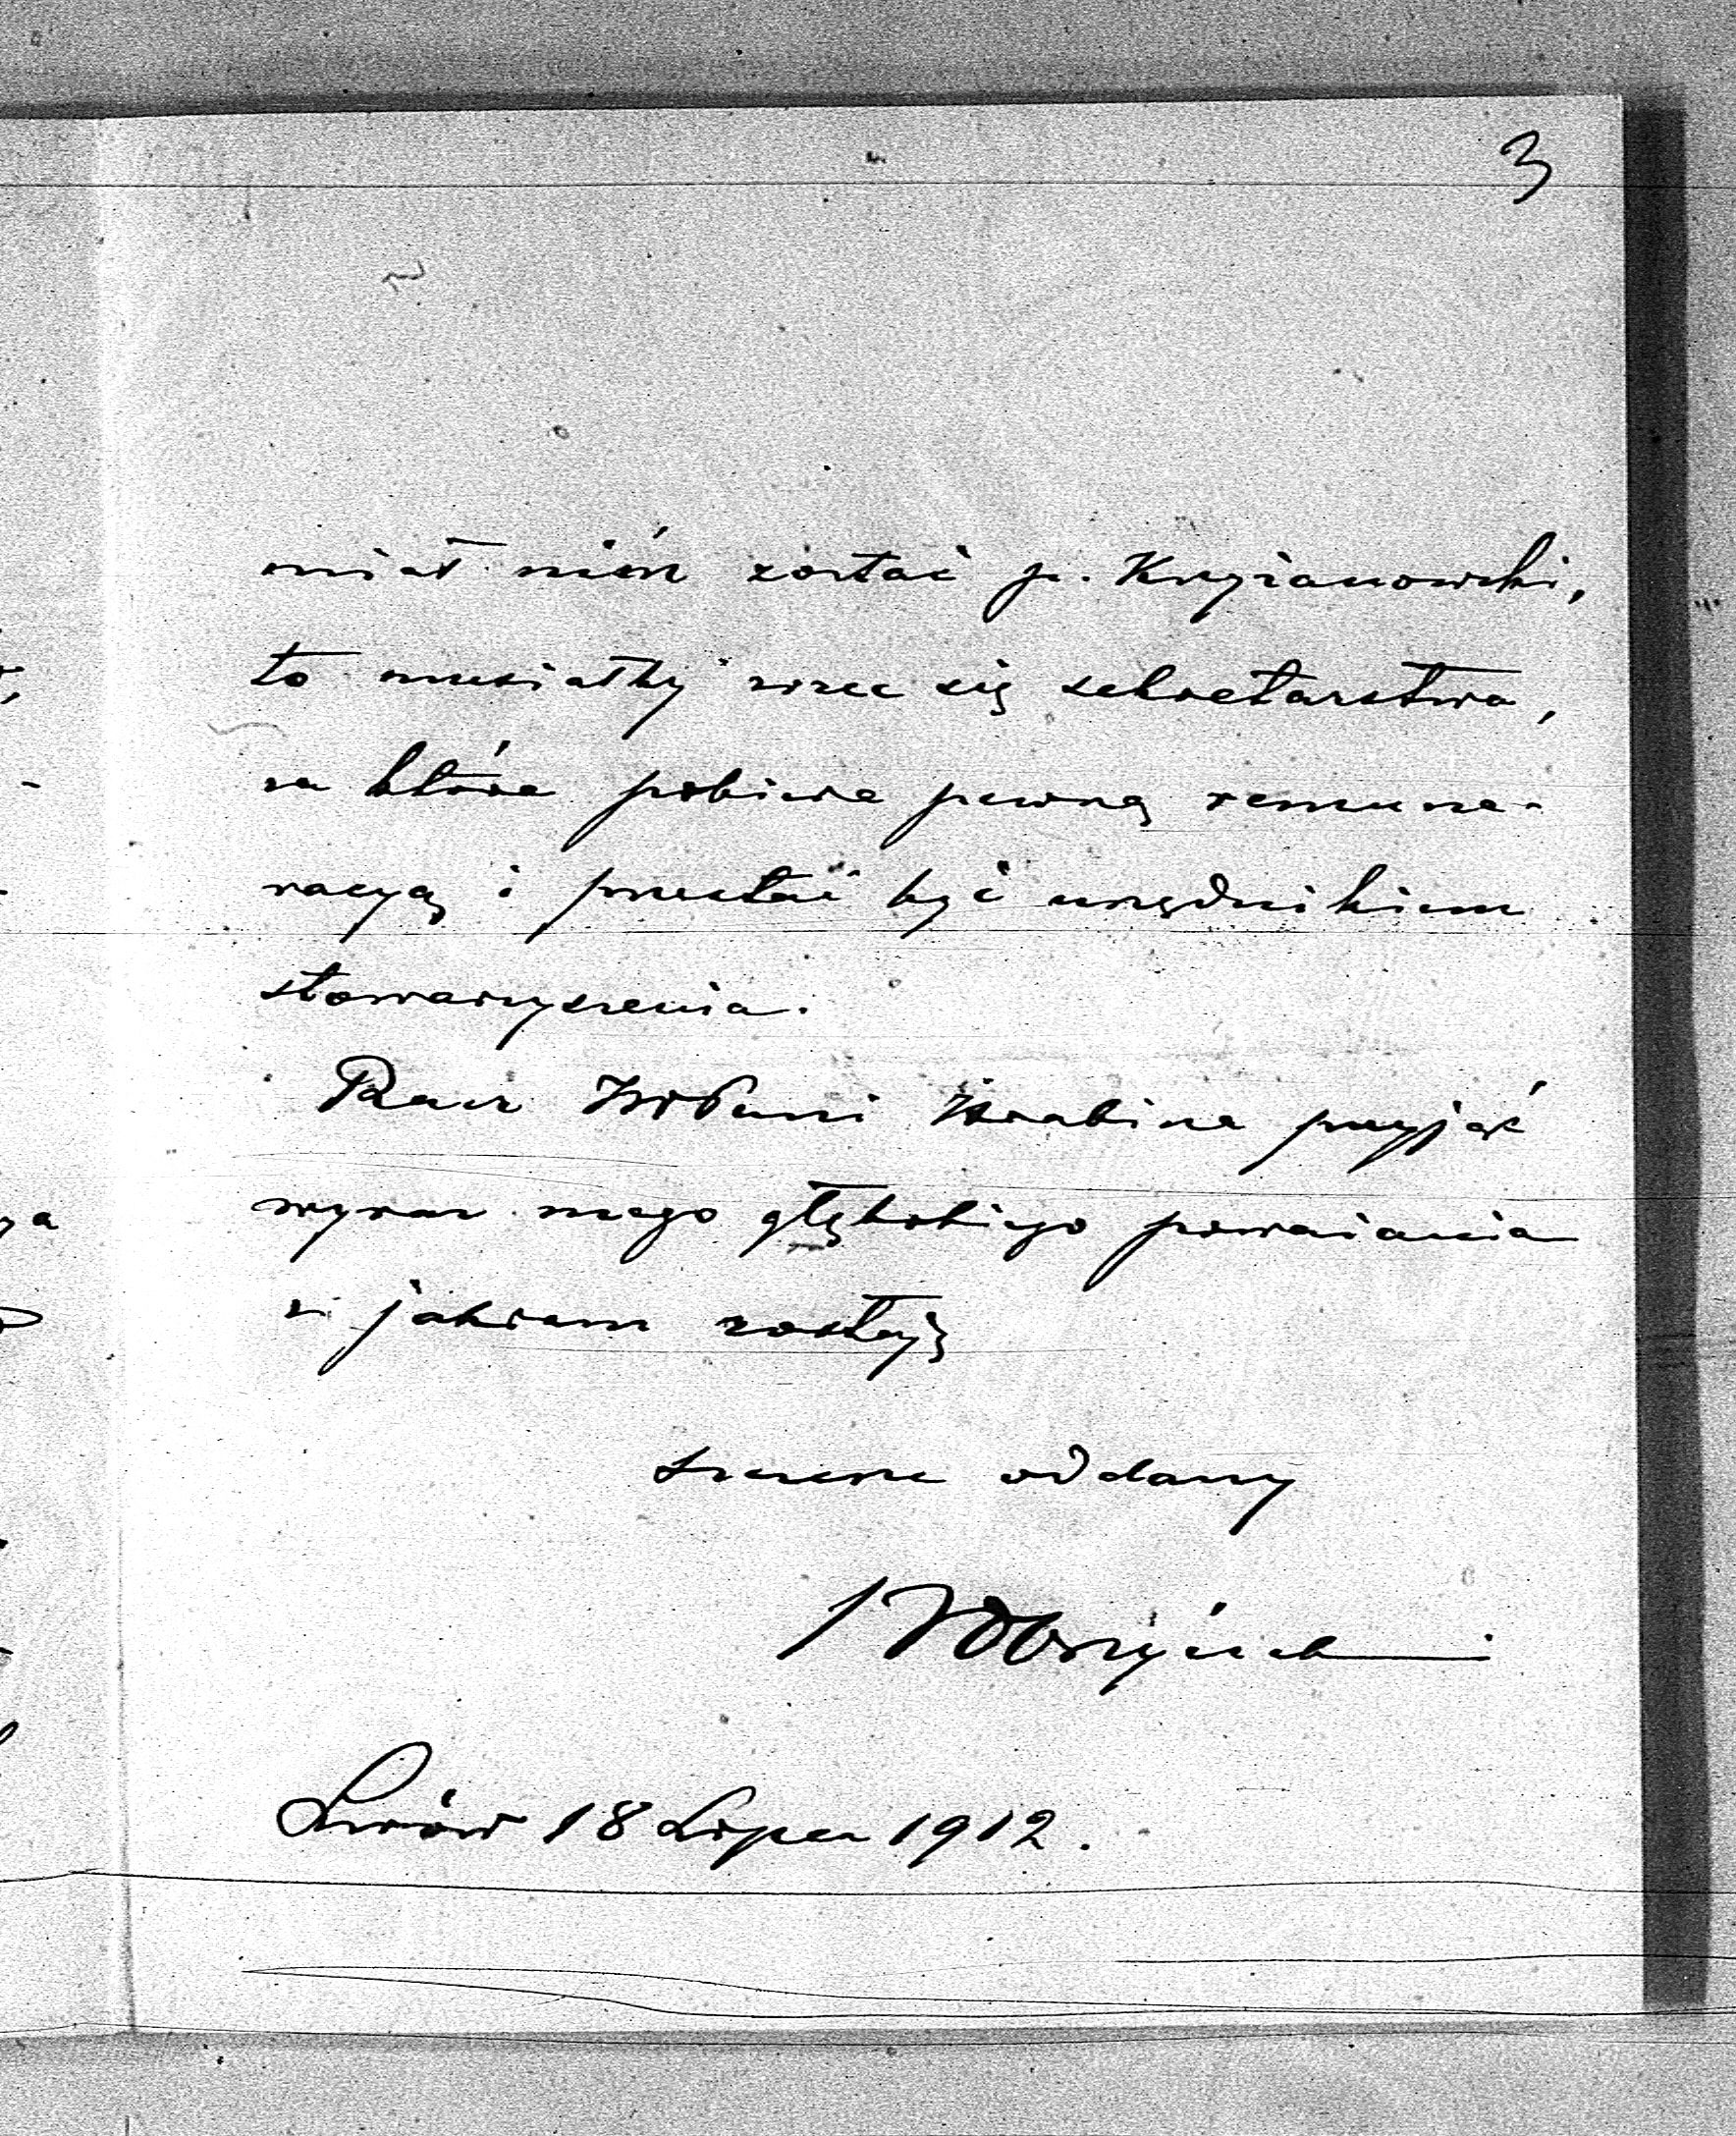 3
miał nim zostać p. Krzyżanowski,
to musiałby zrzec się sekretarstwa,
za które pobiera pewną remune-
racyą i przestać być urzędnikiem
stowarzyszenia.
Racz JWPani Hrabina przyjąć
wyraz mego głębokiego poważania
z jakiem zostaję
szczerze oddany
Lwów 18 Lipca 1912.